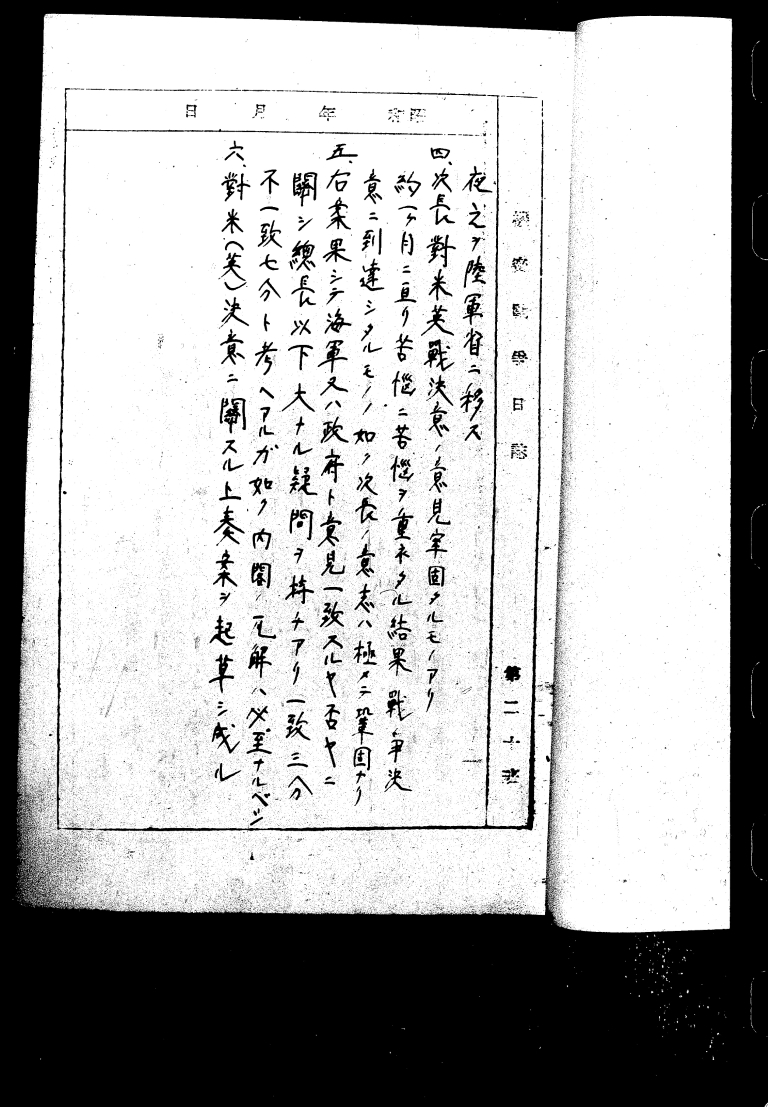 昭和　年　月　日
夜之ヲ陸軍省ニ移ス
四、次長對米英戰決意ノ意見牢固タルモノアリ
約一ヶ月ニ亘リ苦惱ニ苦惱ヲ重ネタル結果戰爭決
意ニ到達シタルモノノ如ク次長ノ意志ハ極メテ鞏固ナリ
五、右案果シテ海軍又ハ政府ト意見一致スルヤ否ヤニ
關シ總長以下大ナル疑問ヲ持チアリ一致三分
不一致七分ト考ヘアルガ如ク内閣ノ瓦解ハ必至ナルベシ
六、對米(英)決意ニ關スル上奏案ヲ起草シ成ル
日誌
第二十